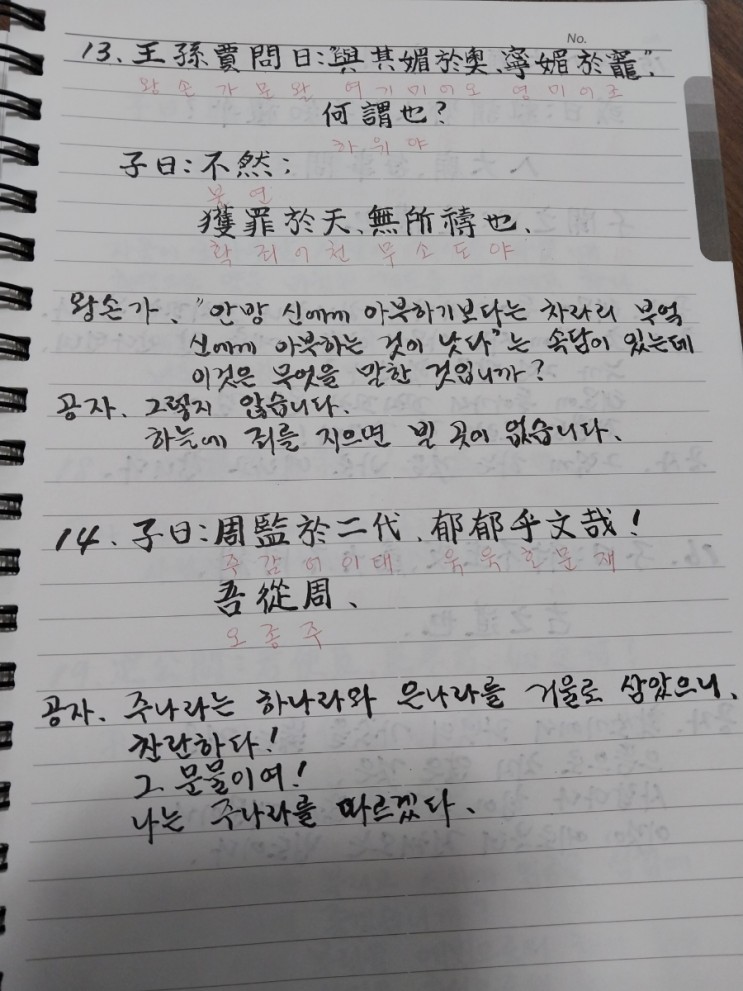 No.
13. 王孫賈問曰:"與其媚於奧、寧媚於竈",
왕손가문왈 여기미어오 영미어조
何謂也?
하위야
子曰: 不然;
불연
獲罪於天、無所禱也、
획죄어천 무소도야
왕손가、"안방 신에게 아부하기보다는 차라리 부엌
신에게 아부하는 것이 낫다"는 속담이 있는데
이것은 무엇을 말한 것입니까?
공자. 그렇지 않습니다.
하늘에 죄를 지으면 빌 곳이 없습니다.
14. 子曰: 周監於二代、郁郁乎文哉!
주감어이대 욱욱호문재
吾從周、
오종주
공자. 주나라는 하나라와 은나라를 거울로 삼았으니、
찬란하다!
그 문물이여!
나는 주나라를 따르겠다.